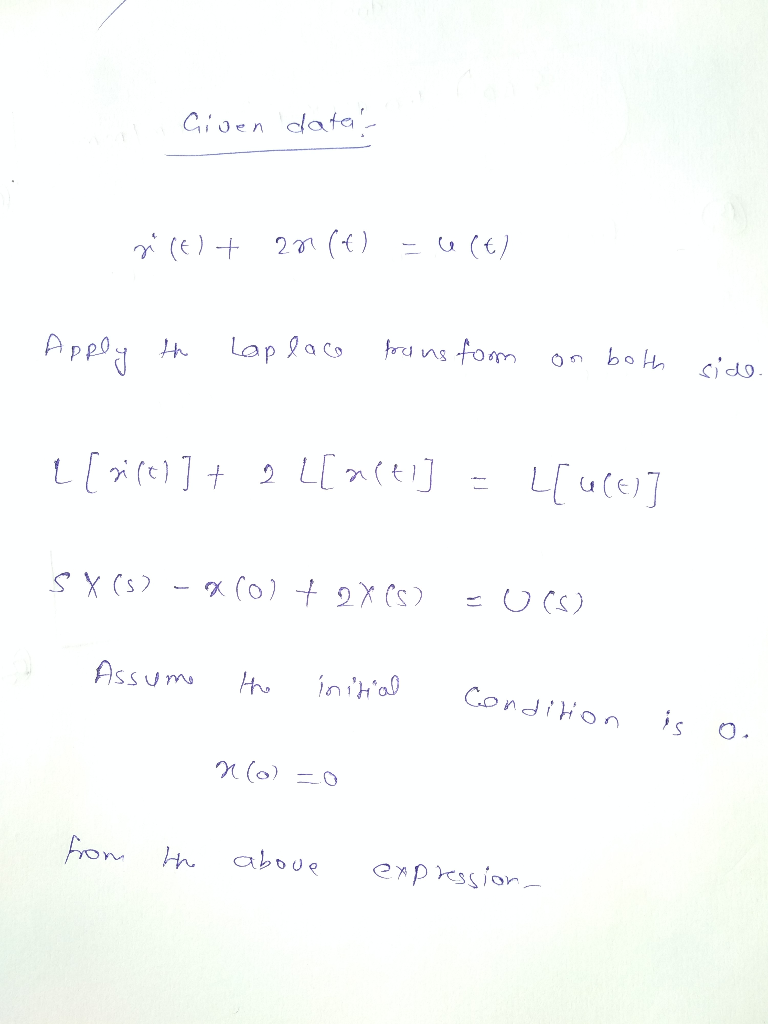 Given data:-
ẋ(t) + 2x(t) = u(t)
Apply the Laplace transform on both side.
L[ẋ(t)] + 2 L[x(t)] = L[u(t)]
SX(s) - x(0) + 2X(s) = U(s)
Assume the initial Condition is 0.
x(0) = 0
from the above expression-